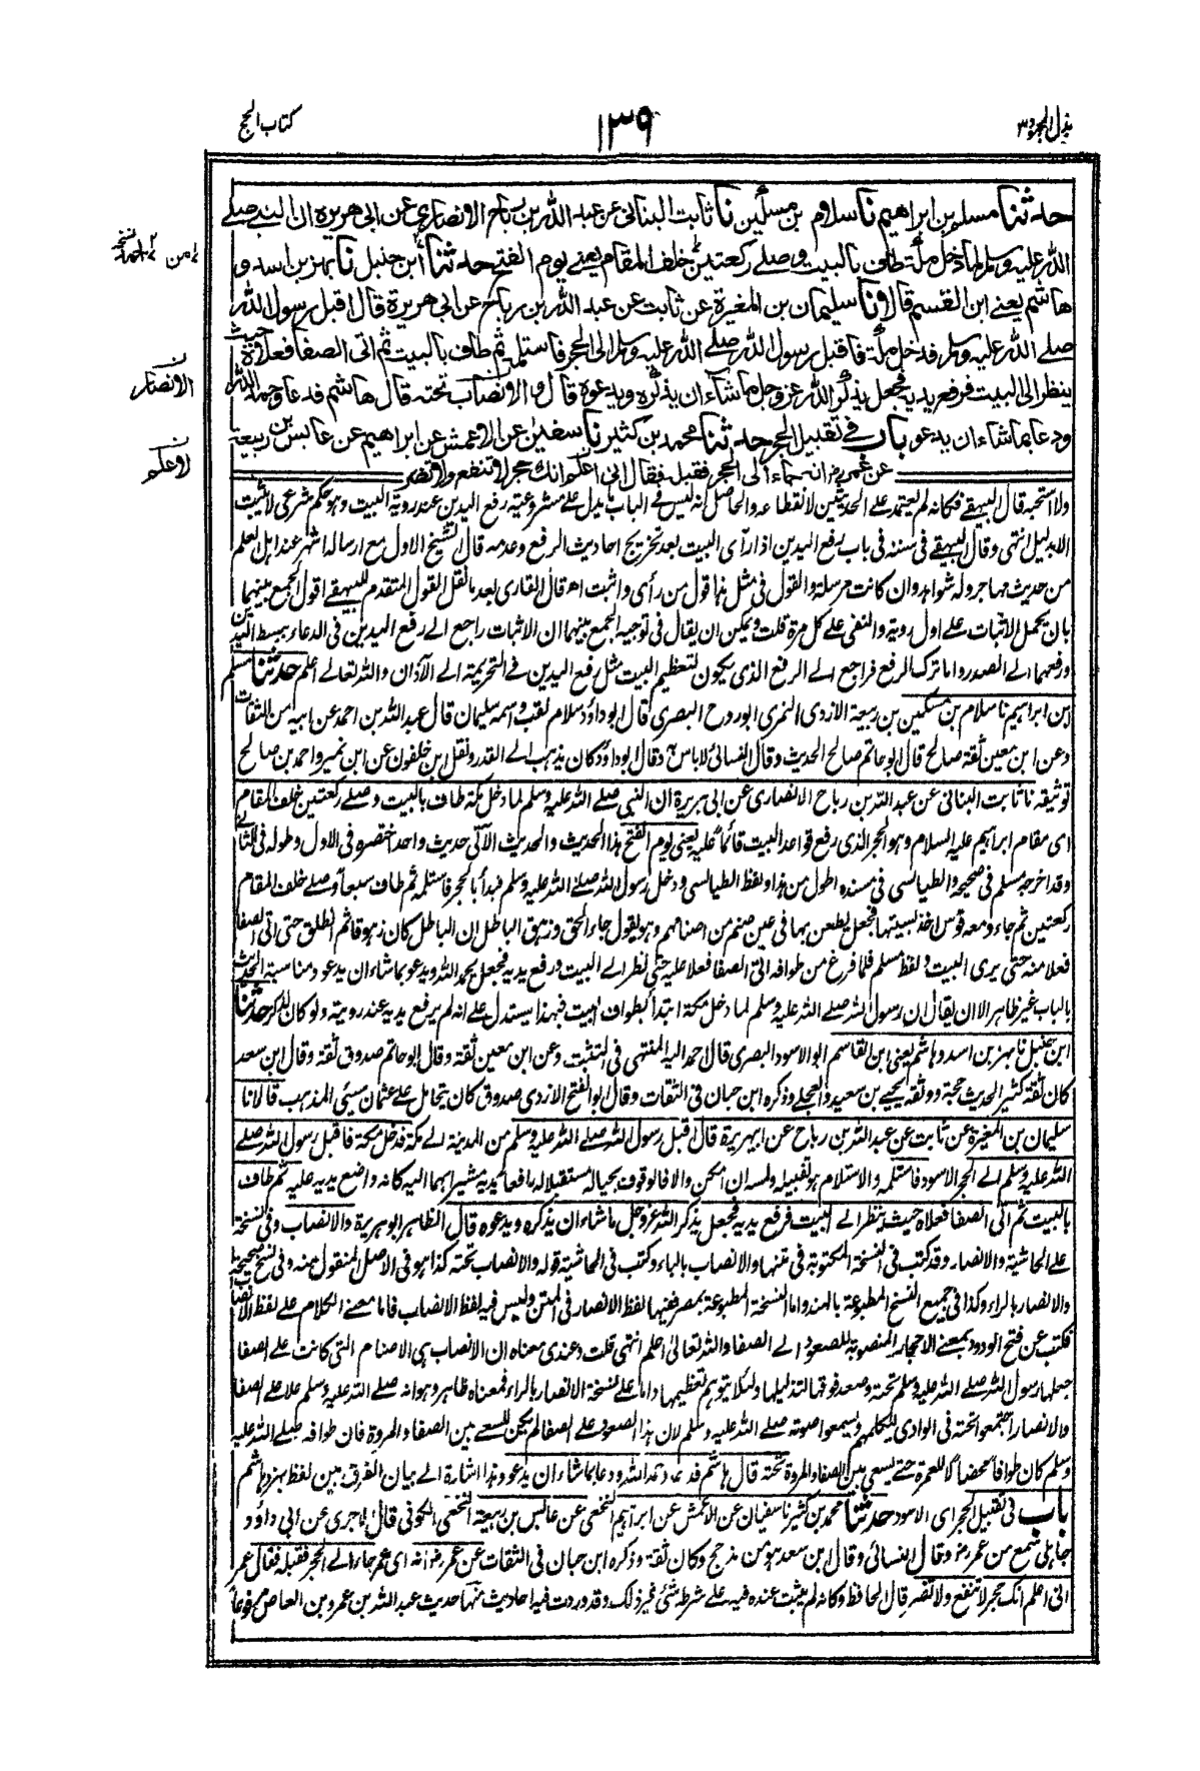 بذل المجہود ٣
١٣٩
كتاب الحج
حدثنا مسلم بن ابراهيم نا سلام بن مسكين نا ثابت البنانى عن عبد الله بن رباح الانصارى عن ابى هريرة ان النبى صلے
الله عليه وسلم لما دخل مكة طاف بالبيت وصلے ركعتين خلف المقام يعنى يوم الفتح حدثنا ابن حنبل نا بهز بن اسد و
هاشم يعنے ابن القسم قالا ونا سليمان بن المغيرة عن ثابت عن عبد الله بن رباح عن ابى هريرة قال اقبل رسول الله
صلے الله عليه وسلم فدخل مكة فاقبل رسول الله صلے الله عليه وسلم الى الحجر فاستلمه ثم طاف بالبيت ثم اتى الصفا فعلاه حيث
ينظر الى البيت فرفع يديه فجعل يذكر الله عز وجل ما شاء ان يذكره ويدعوه قال والانصاب تحته قال هاشم فدعا وحمد الله
ودعا بما شاء ان يدعو باب فى تقبيل الحجر حدثنا محمد بن كثير نا سفين عن الاعمش عن ابراهيم عن عابس بن ربيعة
عن عمر رض انه جاء الى الحجر فقبله فقال انى اعلم انك حجر لا تنفع ولا تضر
الانصار
ولا استحبه قال البيهقے فكانه لم يعتمد علے الحديثين لانقطاعه والحاصل انه ليس فے الباب ما يدل علے مشروعية رفع اليدين عند روية البيت وهو حكم شرعى لا يثبت
الا بدليل انتهى وقال البيهقے فى سننه فى باب رفع اليدين اذا رآى البيت بعد تخريج احاديث الرفع وعدمه قال الشيخ الاول مع ارساله اشهر عند اهل العلم
من حديث مهاجر وله شواهد وان كانت مرسلة والقول فى مثل هذا قول من رأى واثبت اھ قال القارى بعد ما نقل القول المتقدم للبيهقے اقول الجمع بينهما
بان يحمل الاثبات علے اول روية والنفى علے كل مرة قلت ويمكن ان يقال فى توجيه الجمع بينهما ان الاثبات راجع الے رفع اليدين فى الدعاء ببسط اليدين
ورفعهما الے الصدر واما ترك الرفع فراجع الے الرفع الذى يكون لتعظيم البيت مثل رفع اليدين فے التحريمة الے الآذان والله تعالے اعلم حدثنا مسلم
ابن ابراهيم نا سلام بن مسكين بن ربيعة الازدى النمرى ابو روح البصرى قال ابو داؤد سلام لقب واسمه سليمان قال عبد الله بن احمد عن ابيه من الثقات
وعن ابن معين ثقة صالح قال ابو حاتم صالح الحديث وقال النسائى لا باس به وقال ابو داؤد كان يذهب الے القدر ونقل ابن خلفون عن ابن نمير واحمد بن صالح
توثيقه نا ثابت البنانى عن عبد الله بن رباح الانصارى عن ابى هريرة ان النبى صلے الله عليه وسلم لما دخل مكة طاف بالبيت وصلے ركعتين خلف المقام
اى مقام ابراهيم عليه السلام وهو الحجر الذى رفع قواعد البيت قائما عليه يعنى يوم الفتح هذا الحديث والحديث الآتى حديث واحد اختصره فى الاول وطوله فى الثانے
وقد اخرجه مسلم فى صحيحه والطيالسى فى مسنده اطول من هذا ولفظ الطيالسى ودخل رسول الله صلے الله عليه وسلم فبدأ بالحجر فاستلمه ثم طاف سبعا وصلے خلف المقام
ركعتين ثم جاء ومعه قوس اخذ بسيتها فجعل يطعن بها فى عين صنم من اصنامهم وهو يقول جاء الحق وزهق الباطل ان الباطل كان زهوقا ثم انطلق حتى اتى الصفا
فعلا منه حتى يرى البيت ولفظ مسلم فلما فرغ من طوافه اتى الصفا فعلا عليه حتى نظر الے البيت ورفع يديه فجعل يحمد الله ويدعو بما شاء ان يدعو ومناسبة الحديث
بالباب غير ظاهر الا ان يقال ان رسول الله صلے الله عليه وسلم لما دخل مكة ابتدأ بطواف البيت فبهذا يستدل علے انه لم يرفع يديه عند رويته ولو كان لذكر حدثنا
ابن حنبل نا بهز بن اسد وهاشم يعنى ابن القاسم ابو الاسود البصرى قال احمد اليه المنتهى فى التثبت وعن ابن معين ثقة وقال ابو حاتم صدوق ثقة وقال ابن سعد
كان ثقة كثير الحديث حجة ووثقه يحيے بن سعيد والعجلے وذكره ابن حبان فى الثقات وقال ابو الفتح الازدى صدوق كان يتحامل علے عثمان سيئى المذهب قالا نا
سليمان بن المغيرة عن ثابت عن عبد الله بن رباح عن ابى هريرة قال اقبل رسول الله صلے الله عليه وسلم من المدينة الے مكة فدخل مكة فاقبل رسول الله صلے
الله عليه وسلم الے الحجر الاسود فاستلمه والاستلام هو تقبيله ولمسه ان امكن والا فالوقوف بحياله مستقبلا له رافعا يديه مشيرا بهما اليه كانه واضع يديه عليه ثم طاف
بالبيت ثم اتى الصفا فعلاه حيث ينظر الے البيت فرفع يديه فجعل يذكر الله عز وجل ما شاء ان يذكره ويدعوه قال الظاهر ابو هريرة والانصاب وفى النسخة
علے الحاشية والانصار وقد كتب فى النسخة المكتوبة فى متنها والانصاب بالباء وكتب فى الحاشية قوله والانصاب تحته كذا هو فى الاصل المنقول عنه وفى نسخ صحيحة
والانصار بالراء وكذا فى جميع النسخ المطبوعة بالهند واما النسخة المطبوعة بمصر ففيها لفظ الانصار فى المتن وليس فيه لفظ الانصاب فاما معنے الكلام علے لفظ الانصاب
فكتب عن فتح الودود بمعنے الاحجار المنصوبة للصعود الے الصفا والله تعالىٰ اعلم انتهى قلت وعندى معناه ان الانصاب هى الاصنام التى كانت علے الصفا
جعلها رسول الله صلے الله عليه وسلم تحته وصعد فوقها لتذليلها ولئلا يتوهم تعظيمها واما علے نسخة الانصار بالراء فمعناه ظاهر وهو انه صلے الله عليه وسلم علا علے الصفا
والانصار اجتمعوا تحته فى الوادى ليكلمهم ويسمعوا صوته صلے الله عليه وسلم لان هذا الصعود علے الصفا لم يكن للسعے بين الصفا والمروة فان طوافه صلے الله عليه
وسلم كان طوافا محضا لا للعمرة حتے يسعى بين الصفا والمروة تحته قال هاشم فدعا وحمد الله ودعا بما شاء ان يدعو وهذا اشارة الے بيان الفرق بين لفظ بهز وهاشم
باب فى تقبيل الحجر اى الاسود حدثنا محمد بن كثير نا سفيان عن الاعمش عن ابراهيم النخعى عن عابس بن ربيعة النخعى الكوفى قال الآجرى عن ابى داؤد
جاهلى سمع من عمر رض وقال النسائى وقال ابن سعد هو من مذحج وكان ثقة وذكره ابن حبان فى الثقات عن عمر رض انه اى عمر جاء الے الحجر فقبله فقال عمر
انى اعلم انك حجر لا تنفع ولا تضر قال الحافظ وكانه لم يثبت عنده فيه علے شرطه شئ غير ذلك وقد وردت فيه احاديث منها حديث عبد الله بن عمرو بن العاص مرفوعا